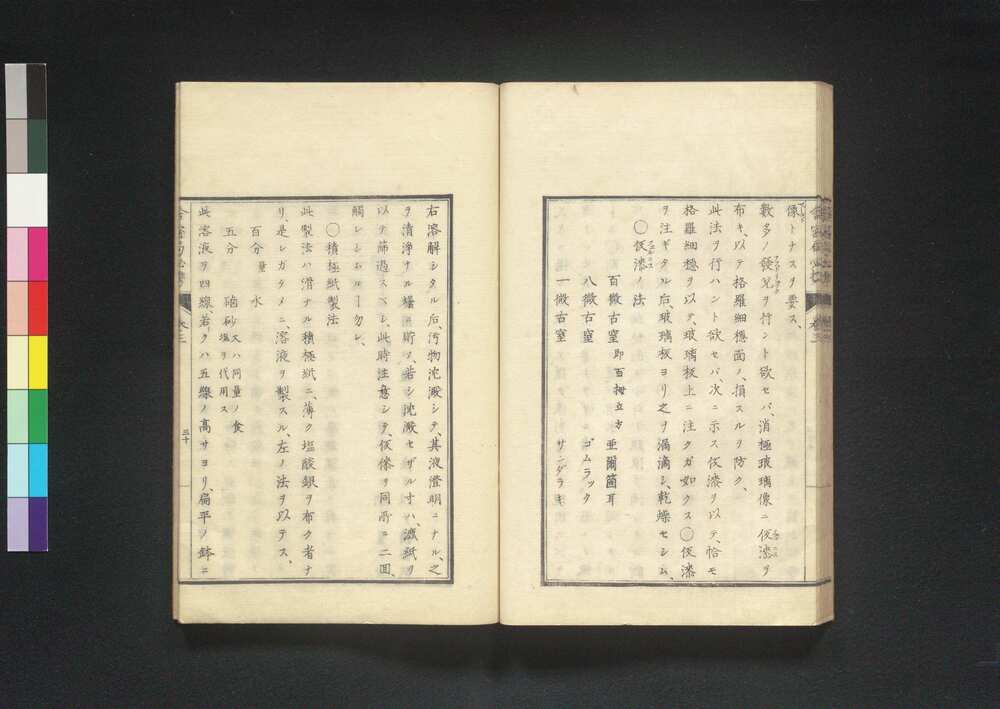 像トナスヲ要ス、
數多ノ發兌ヲ行ント欲セバ、消極玻璃像ニ仮漆ヲ
布キ、以テ格羅細穏面ノ損スルヲ防グ、
此法ヲ行ハント欲セバ、次ニ示ス仮漆ヲ以テ、恰モ
格羅細穏ヲ以テ、玻璃板上ニ注クガ如クス○仮漆
ヲ注ギタル后、玻璃板ヨリ之ヲ漏滴シ、乾燥セシム、
○仮漆ノ法
百微古窒 即百拇立方 亜爾箇耳
八微古窒 ゴムラック
一微古窒 サンダラキ
右溶解シタル后、汚物沈澱シテ、其液澄明ニナル、之
ヲ清浄ナル壜ニ貯ヘ、若シ沈澱セザル寸ハ、濾紙ヲ
以テ篩過スベシ、此時注意シテ、仮像ヲ同所ニ二回、
觸レシムル勿レ、
○積極紙製法
此製法ハ滑ナル積極紙ニ、薄ク塩酸銀ヲ布ク者ナ
リ、是レガタメニ、溶液ヲ製スル、左ノ法ヲ以テス、
百分量 水
五分 硇砂 又ハ同量ノ食塩ヲ代用ス
此溶液ヲ四線、若クハ五線ノ高サヨリ、扁平ノ鉢ニ
卷三
三十